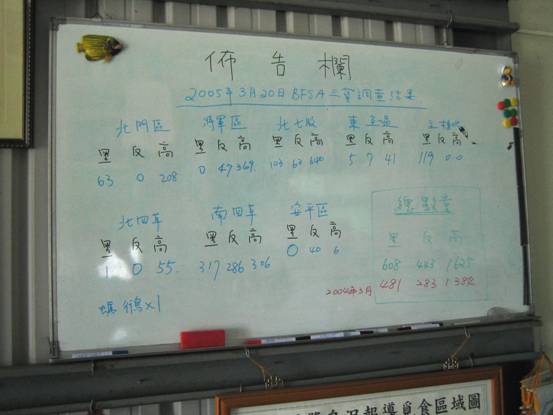 佈告欄
2005年3月20日BFSA三賞調查結果
北門區 將軍區 北七股 東 區
黑 反 高 黑 反 高 黑 反 高 黑 反 高 黑 反 高
63 0 208 0 47 369 103 63 640 5 7 41 119 0 0
北四草 南四草 安平區 總數量
黑 反 高 黑 反 高 黑 反 高 黑 反 高
1 0 55 317 286 306 0 40 6 608 443 1625
2004年3月 481 283 1382
鵝×1
報導覓食區域圖